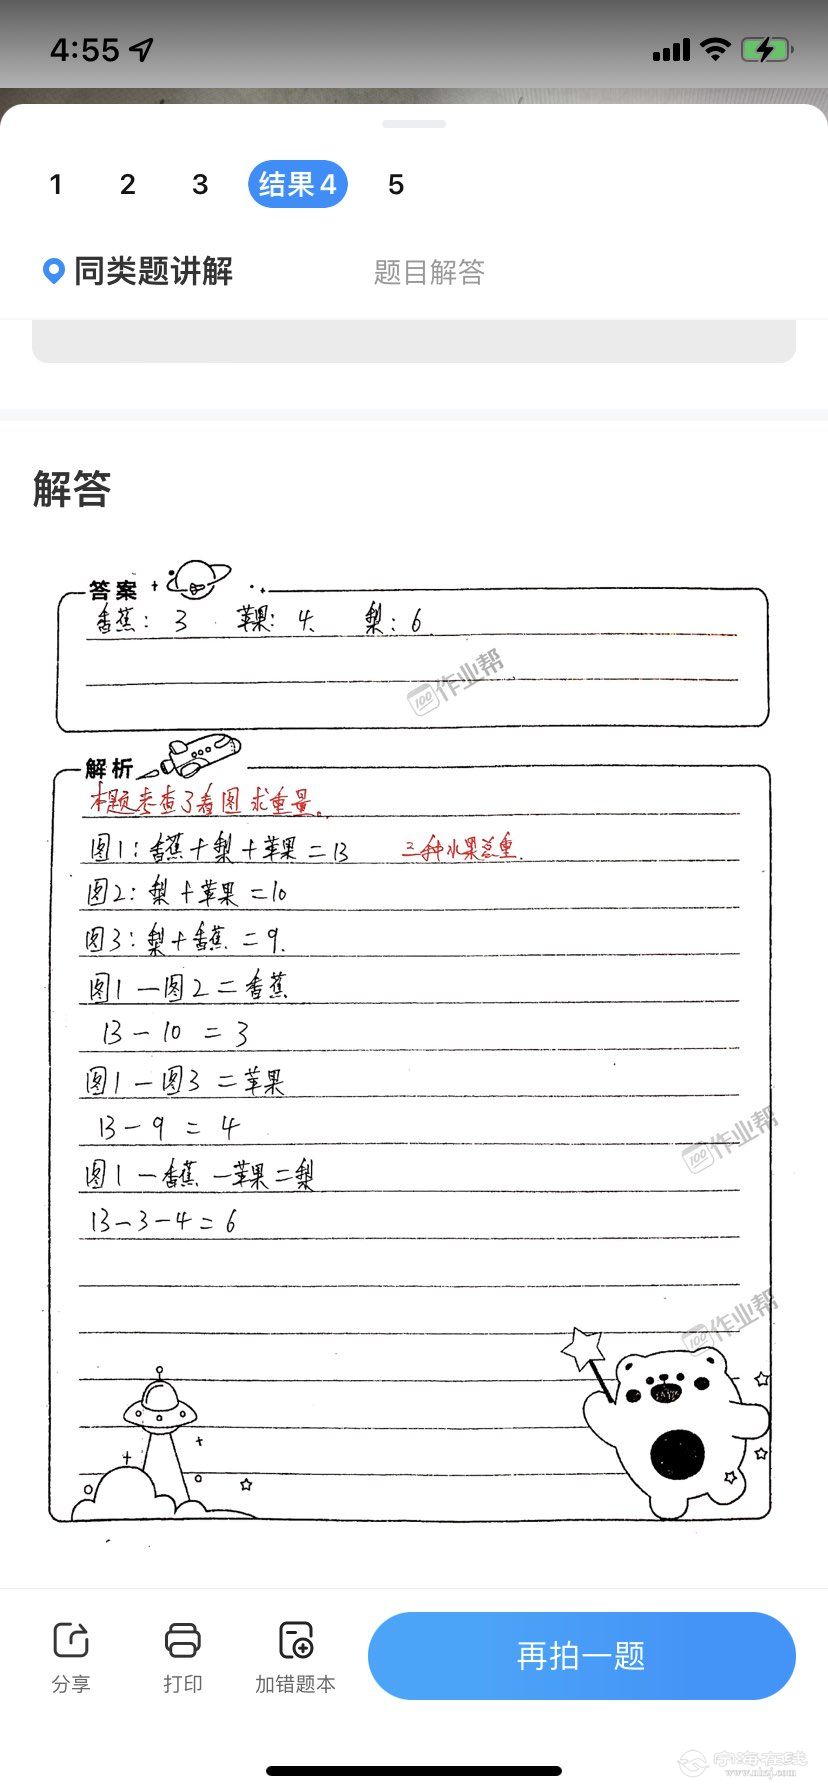 4:55
1 2 3 结果4 5
同类题讲解 题目解答
解答
答案
香蕉: 3 苹果: 4 梨: 6
100作业帮
解析
本题考查了看图求重量。
图1: 香蕉+梨+苹果=13 三种水果总重.
图2: 梨+苹果=10
图3: 梨+香蕉=9.
图1-图2=香蕉
13-10=3
图1-图3=苹果
13-9=4
100作业帮
图1-香蕉-苹果=梨
13-3-4=6
100作业帮
分享 打印 加错题本 再拍一题
宁海在线
www.nhzj.com